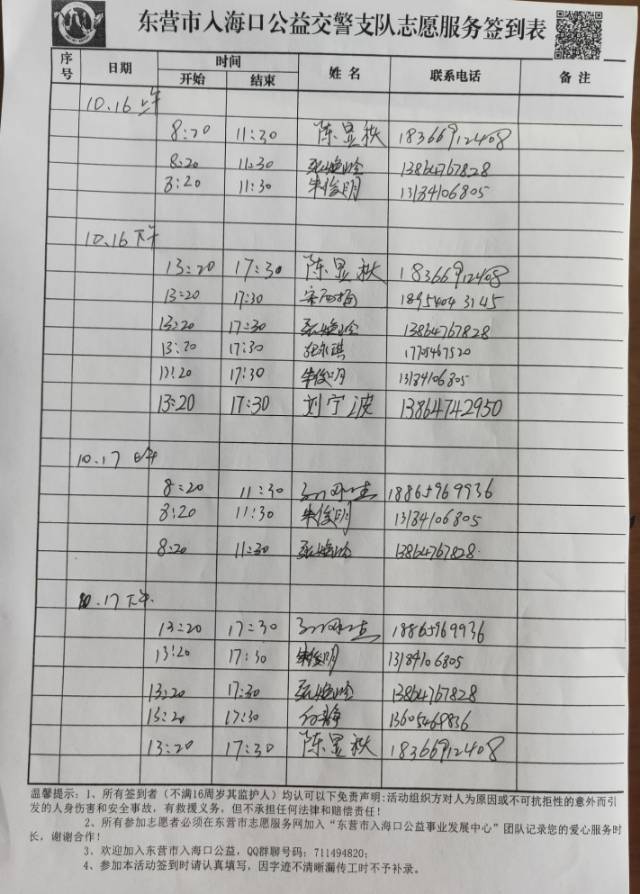 东营市入海口公益交警支队志愿服务签到表
序号 日期 时间 姓名 联系电话 备注
开始 结束
10.16上午
8:20 11:30 陈昱秩 18366912408
8:20 11:30 13864767828
8:20 11:30 朱俊明 13184106805
10.16下午
13:20 17:30 陈昱秩 18366912408
13:20 17:30 18954043145
13:20 17:30 13864767828
13:20 17:30
13:20 17:30 朱俊明 13184106805
13:20 17:30 刘宁波 13864742950
10.17上午
8:20 11:30 18865969936
8:20 11:30 朱俊明 13184106805
8:20 11:30 13864767828
10.17下午
13:20 17:30 18865969936
13:20 17:30 朱俊明 13184106805
13:20 17:30 13864767828
13:20 17:30
13:20 17:30 陈昱秩 18366912408
温馨提示：1、所有签到者（不满16周岁其监护人）均认可以下免责声明:活动组织方对人为原因或不可抗拒性的意外而引
发的人身伤害和安全事故，有救援义务，但不承担任何法律和赔偿责任！
2、所有参加志愿者必须在东营市志愿服务网加入“东营市入海口公益事业发展中心”团队记录您的爱心服务时
长，谢谢合作！
3、欢迎加入东营市入海口公益，QQ群聊号码：711494820；
4、参加本活动签到时请认真填写，因字迹不清晰漏传工时不予补录。